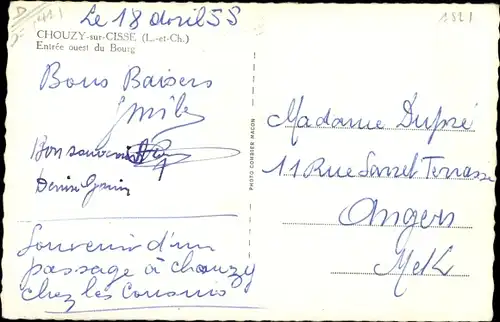 Le 18 avril 55
CHOUZY-sur-CISSE (L.-et-Ch.)
Entrée ouest du Bourg
Bons Baisers
Bon souvenir
Denise
Souvenir d'un
passage à Chouzy
chez les Cousins
PHOTO COMBIER MACON
1821
Madame Dupré
11 Rue Terrasse
Angers